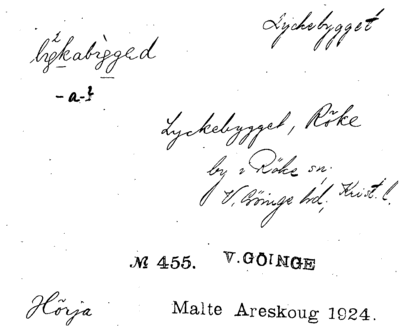 Lyckebygget
-a-
Lyckebygget, Röke
by i Röke sn.
V. Göinge hd, Krist. l.
№ 455. V. GÖINGE
Hörja Malte Areskoug 1924.